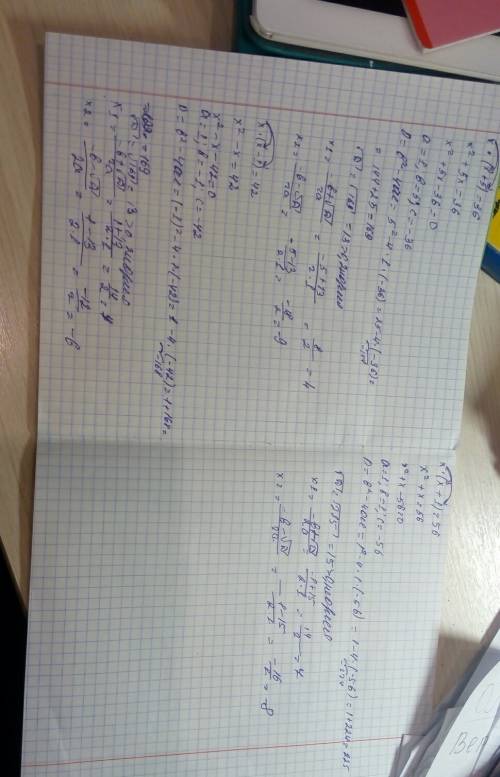 x·(x+5)=36
x²+5x=36
x²+5x-36=0
a=1, b=5, c=-36
D=b²-4ac=5²-4·1·(-36)=25-4·(-36)=
=144+25=169
√D=√169=13>0, 2 корня
x₁=\frac{-b+√D}{2a}=\frac{-5+13}{2·1}=\frac{8}{2}=4
x₂=\frac{-b-√D}{2a}=\frac{-5-13}{2·1}=\frac{-18}{2}=-9
x·(x-1)=42
x²-x=42
x²-x-42=0
a=1, b=-1, c=-42
D=b²-4ac=(-1)²-4·1·(-42)=1-4·(-42)=1+168=
=169
√D=√169=13>0, 2 корня
x₁=\frac{-b+√D}{2a}=\frac{1+13}{2·1}=\frac{14}{2}=7
x₂=\frac{-b-√D}{2a}=\frac{1-13}{2·1}=\frac{-12}{2}=-6
x·(x+1)=56
x²+x=56
x²+x-56=0
a=1, b=1, c=-56
D=b²-4ac=1²-4·1·(-56)=1-4·(-56)=1+224=225
√D=√225=15>0, 2 корня
x₁=\frac{-b+√D}{2a}=\frac{-1+15}{2·1}=\frac{14}{2}=7
x₂=\frac{-b-√D}{2a}=\frac{-1-15}{2·1}=\frac{-16}{2}=-8
Вер